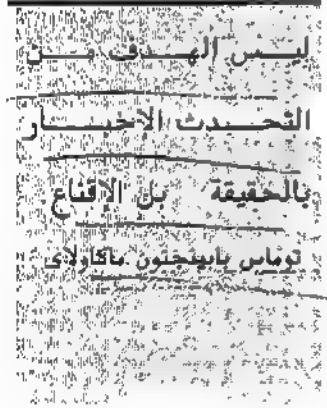 ليس الهدف من
التحدث الاخبار
بالحقيقة بل الإقناع
توماس بابينجتون ماكاولاى